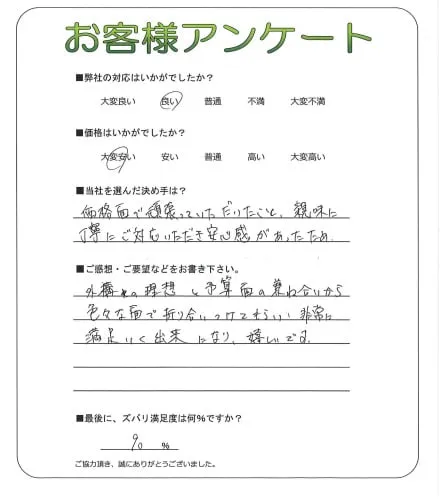 お客様アンケート
■弊社の対応はいかがでしたか?
大変良い 良い 普通 不満 大変不満
■価格はいかがでしたか?
大変安い 安い 普通 高い 大変高い
■当社を選んだ決め手は?
価格面で頑張っていただけたこと、親味に
丁寧にご対応いただき安心感があったため。
■ご感想・ご要望などをお書き下さい。
外構の理想と予算面の兼ね合いから
色々な面で折り合いつけてもらい非常に
満足いく出来になり、嬉しいです。
■最後に、ズバリ満足度は何%ですか?
90 %
ご協力頂き、誠にありがとうございました。